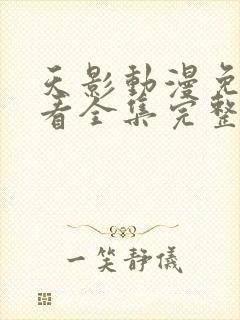 天影動漫免
看全集完整
一笑靜儀